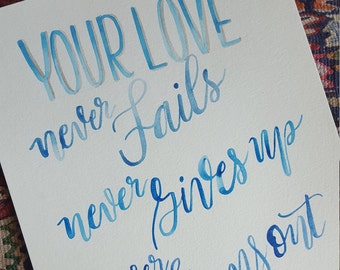 YOUR LOVE
never fails
never gives up
out